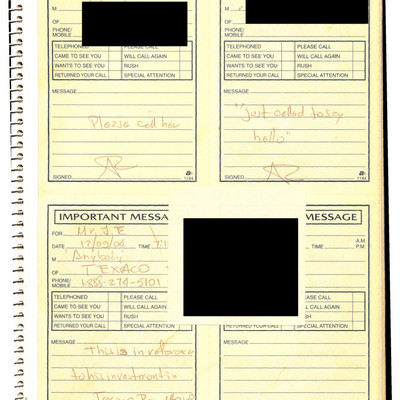 M
OF
PHONE/
MOBILE
TELEPHONED PLEASE CALL
CAME TO SEE YOU WILL CALL AGAIN
WANTS TO SEE YOU RUSH
RETURNED YOUR CALL SPECIAL ATTENTION
MESSAGE
Please call her
SIGNED 1184
M
OF
PHONE/
MOBILE
TELEPHONED PLEASE CALL
CAME TO SEE YOU WILL CALL AGAIN
WANTS TO SEE YOU RUSH
RETURNED YOUR CALL SPECIAL ATTENTION
MESSAGE
"just called to say
hello"
SIGNED 1184
IMPORTANT MESSA
FOR Mr. J.E
DATE 12/09/04 TIME
M "Anybody"
OF TEXACO
PHONE/
MOBILE 1-888-274-5101
TELEPHONED PLEASE CALL
CAME TO SEE YOU WILL CALL AGAIN
WANTS TO SEE YOU RUSH
RETURNED YOUR CALL SPECIAL ATTENTION
MESSAGE
This is in reference
to his investment in
MESSAGE
A.M.
P.M.
PLEASE CALL
WILL CALL AGAIN
RUSH
SPECIAL ATTENTION
MESSAGE